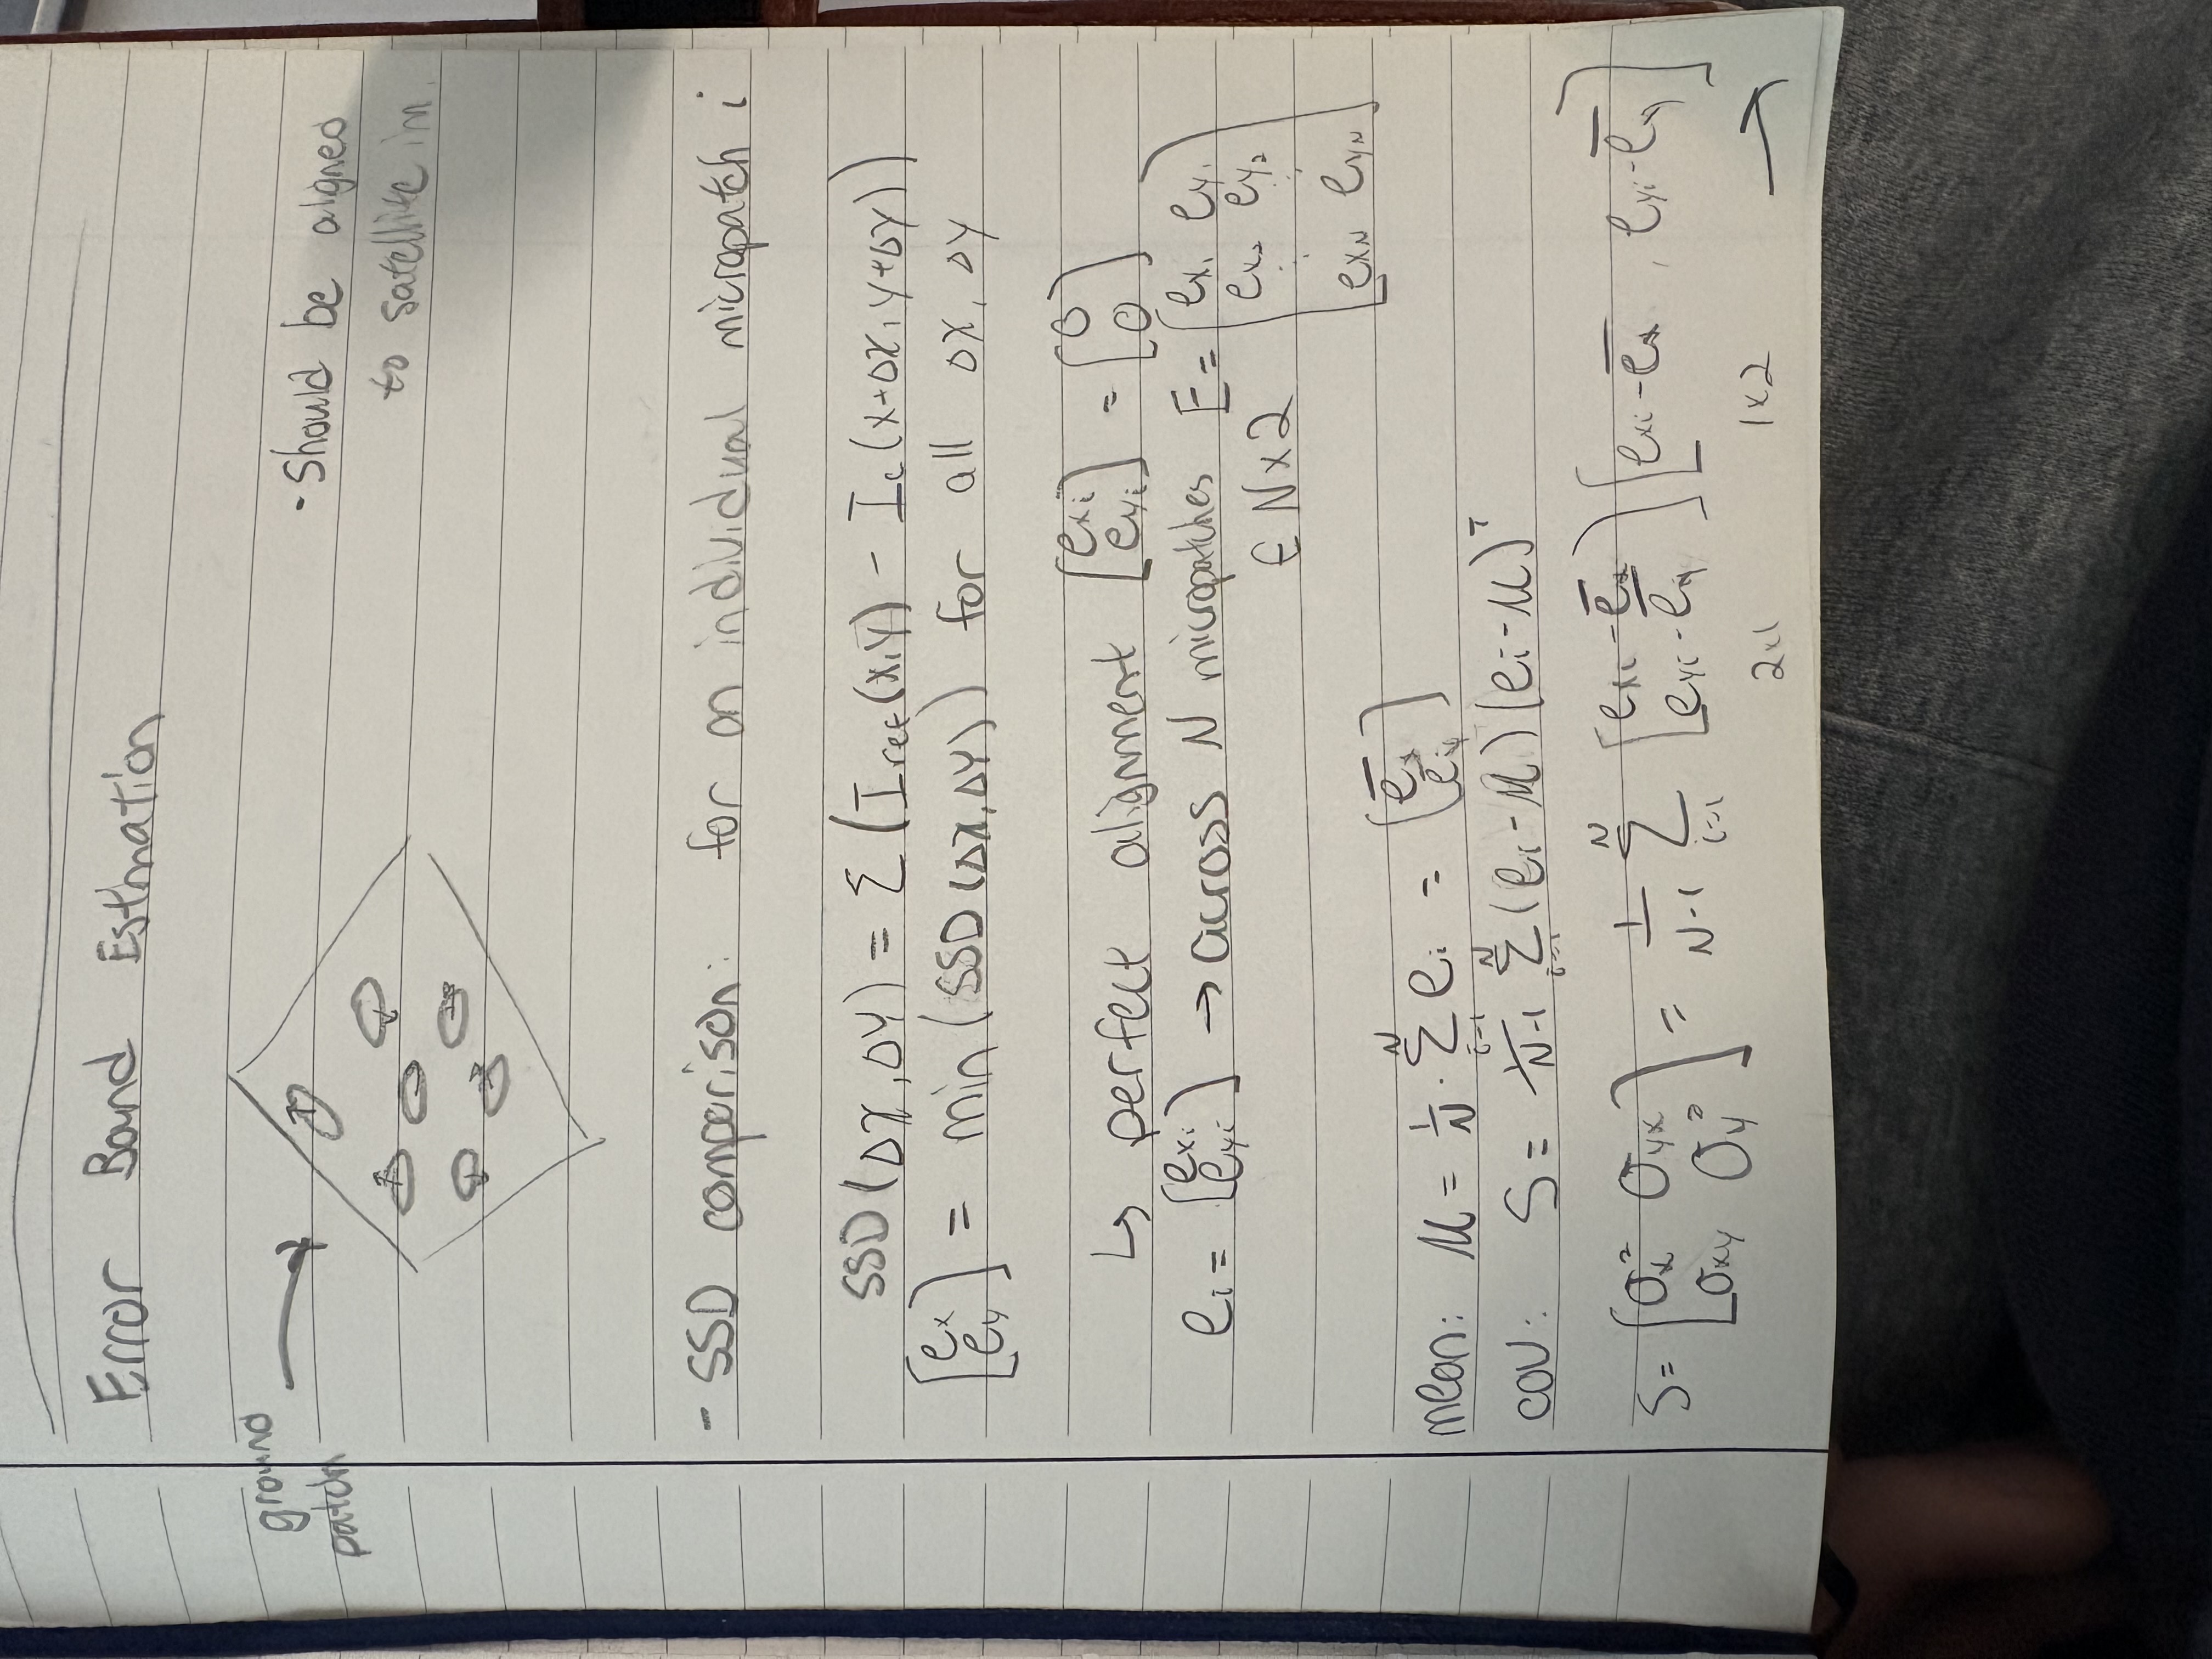 Error Bound Estmation
ground
patch
- Should be aligned
to satellite im.
- SSD comparison: for an individual micropatch i
SSD (Δx, Δy) = Σ (I_ref(x,y) - I_c(x+Δx, y+Δy))
[e_x e_y] = min (SSD(Δx, Δy)) for all Δx, Δy
↳ perfect alignment [e_xi e_yi] = [0 0]
e_i = [e_xi e_yi] → across N micropatches E = [e_x1 e_y1
e_x2 e_y2
⋮ ⋮
e_xN e_yN]
∈ N×2
mean: μ = 1/N · Σ_{i=1}^{N} e_i = [e̅_x e̅_y]
cov: S = 1/N-1 Σ_{i=1}^{N} (e_i - μ)(e_i - μ)^T
S = [σ_x² σ_yx σ_xy σ_y²] = 1/N-1 Σ_{i=1}^{N} [e_xi - e̅_x e_yi - e̅_y] [e_xi - e̅_x , e_yi - e̅_y]
2x1 1x2 →